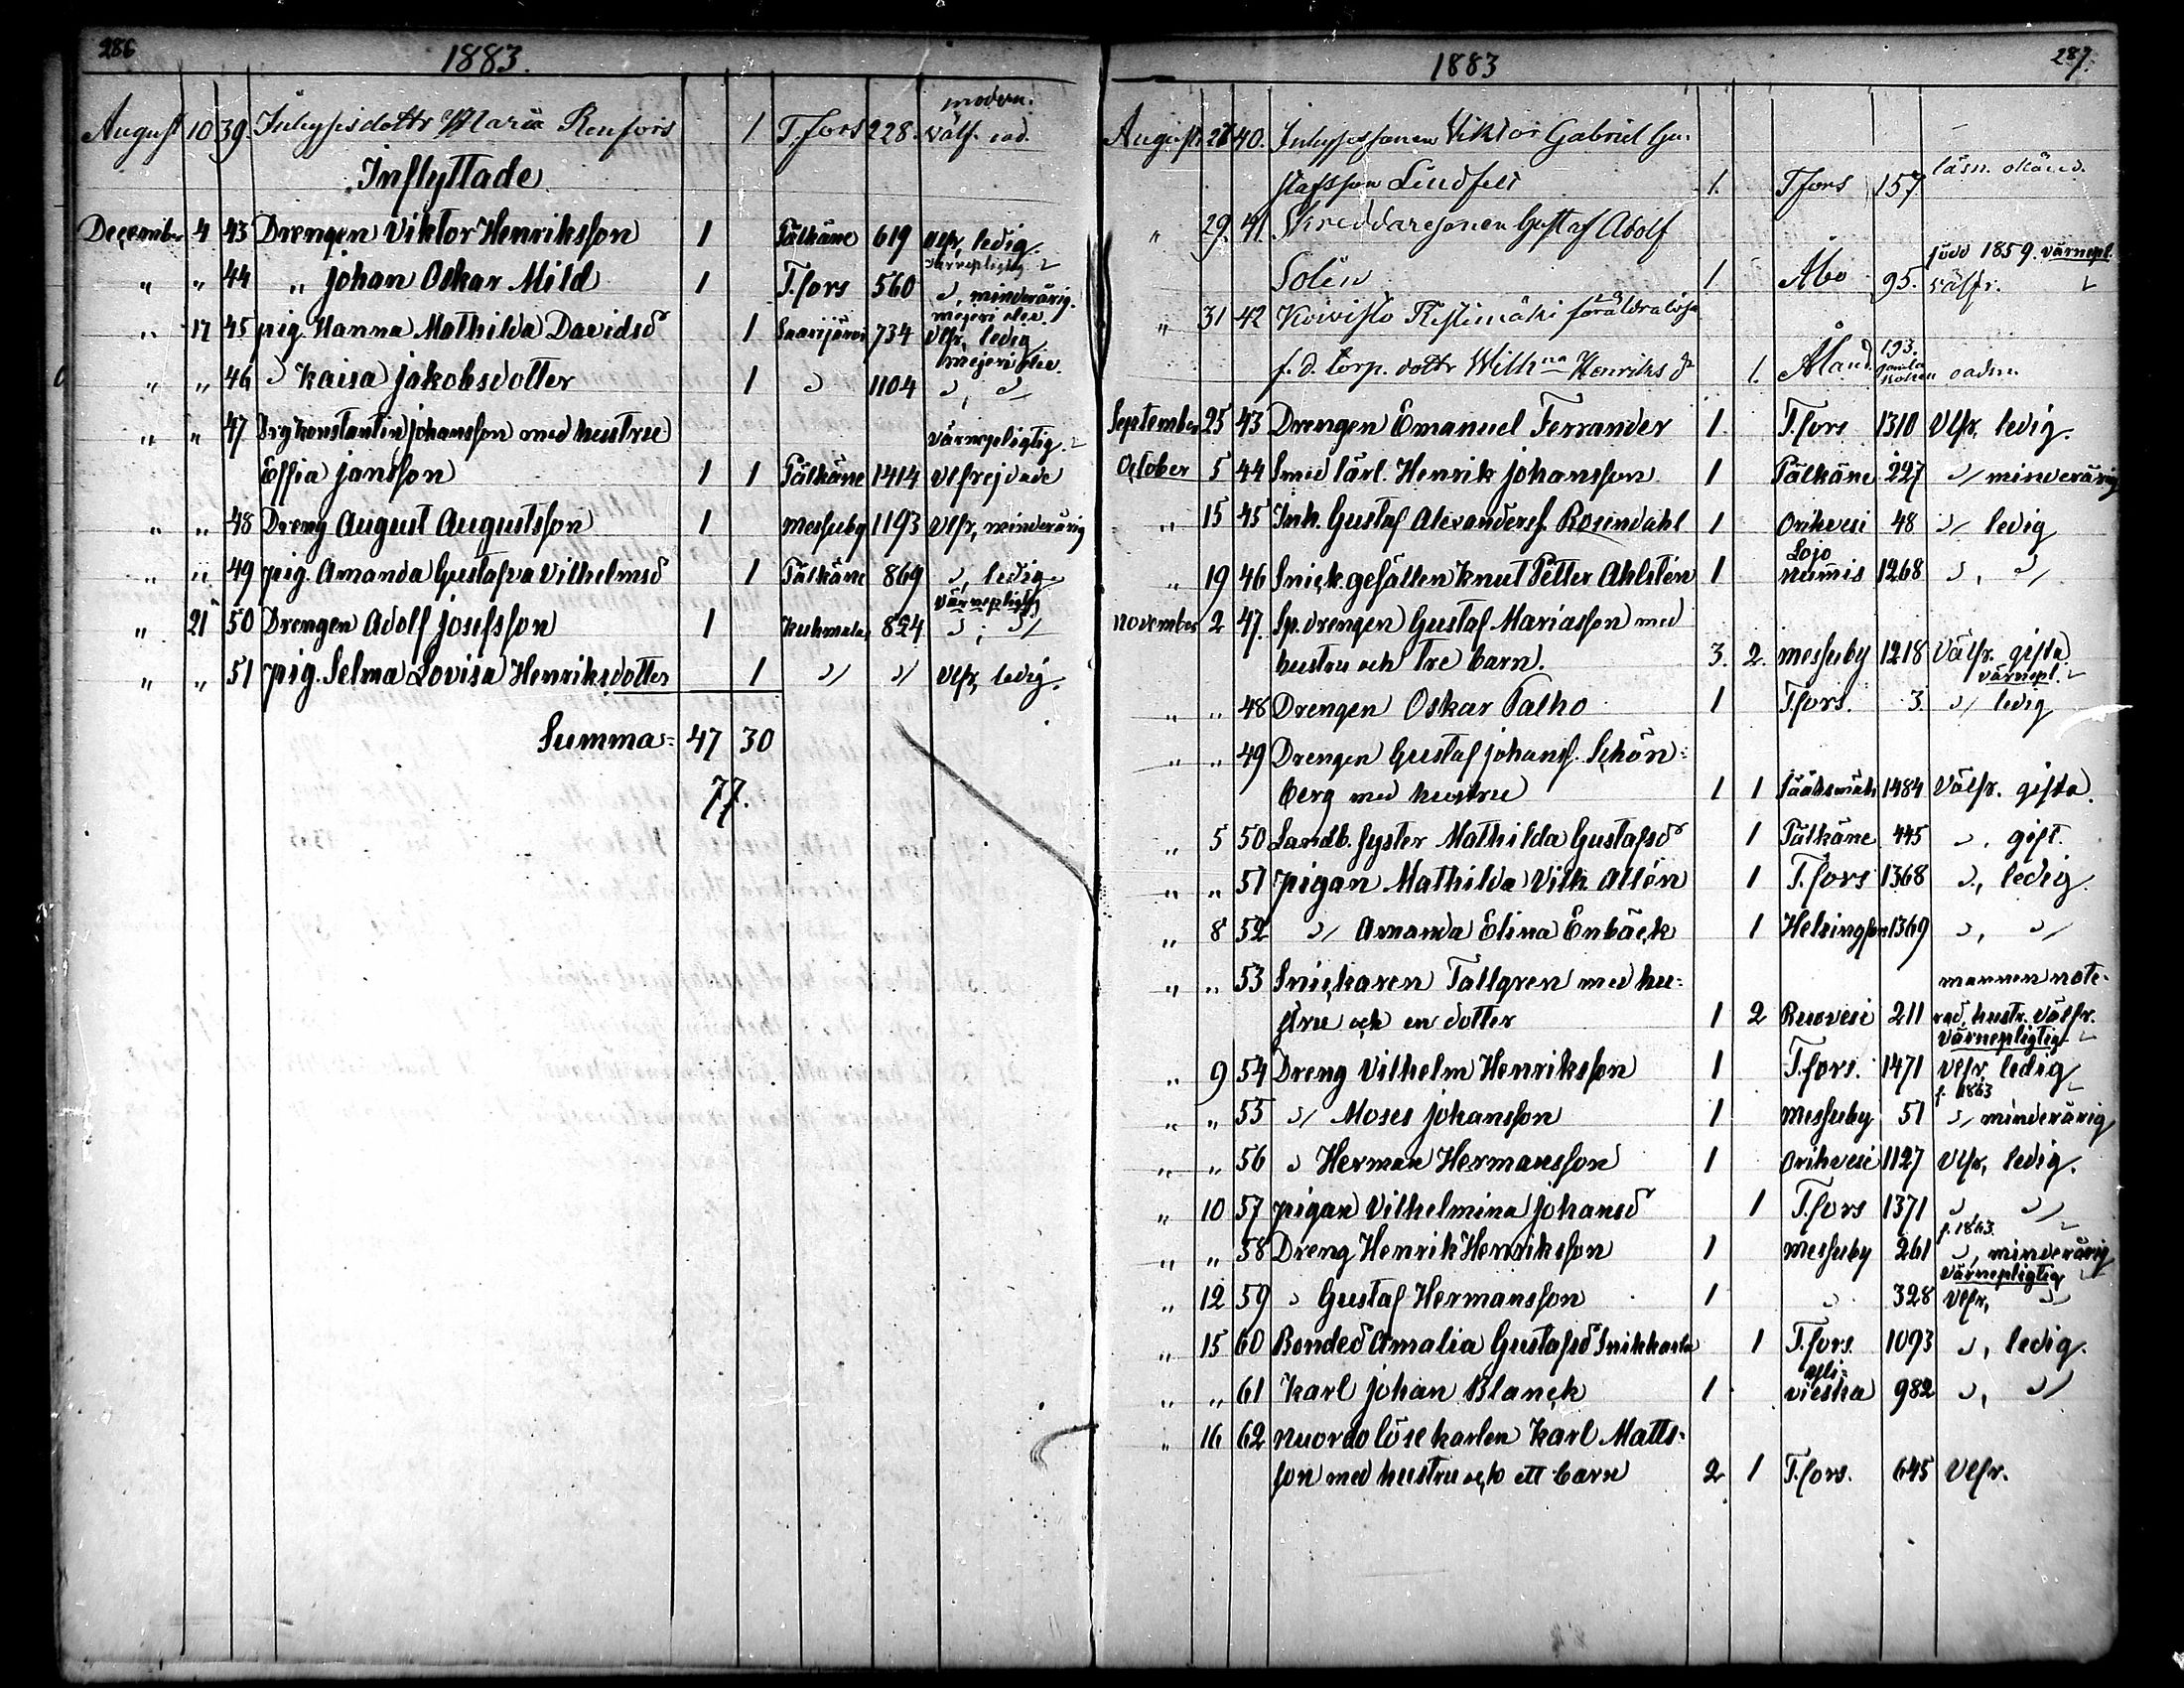 286
1883.
modern.
August 10 39. Inhysesdottr Maria Renfors 1 T.fors 228. välf. oad.
Inflyttade
December 4 43 Drengen Viktor Henriksson 1 Pälkäne 619 vlfr, ledig
värnepligtig
" " 44 " johan Oskar Mild 1 T.fors 560 ", minderårig.
mejeri elev.
" 17 45 pig. Hanna Mathilda Davidsd 1 Saarijärvi 734 vlfr, ledig
mejeri elev.
" " 46 " Kaisa jakobsdotter 1 " 1104 ", "
" " 47 Drg Konstantin johansson med hustru värnepligtig.
Effia jansson 1 1 Pälkäne 1414 vlfrejdade
" " 48 Dreng August Augustsson 1 messuby 1193 vlfr, minderårig
" " 49 pig. Amanda Gustafva Vilhelmsd 1 Pälkäne 869 ", ledig
värnepligtig
" 21 50 Drengen Adolf josefsson 1 Kuhmalax 824 ", "
" " 51 pig. Selma Lovisa Henriksdotter 1 " " vlfr, ledig.
Summa = 47 30
77.
1883
287.
August 28 40. Inhysessonen Viktor Gabriel Gu-
stafsson Lindfelt 1. T.fors 157 läsn.
" 29. 41. Skreddaresonen Gustaf Adolf
född 1859. värnepl.
Solén 1 Åbo 95. välfr.
" 31 42 Koivisto Ristimäki föräldralösa
f. d. torp. dottr Wilhna Henriks dr 1. Åland 193. gamla boken oadm.
September 25 43 Drengen Emanuel Ferrander 1. T.fors 1310 Vlfr, ledig.
October 5 44 Smed lärl. Henrik johansson 1 Pälkäne 227 " minderårig
" 15 45 Inh. Gustaf Alexanders. Rosendahl 1 Orihvesi 48 " ledig
Lojo
" 19 46 Snick. gesällen Knut Petter Ahlstén 1 nummis 1268 ", "
november 2 47 Sp. drengen Gustaf Mariasson med
hustru och tre barn. 3. 2. messuby 1218 Välfr. gifta
värnepl.
" " 48 Drengen Oskar Palho 1 T.fors. 3. " ledig
" " 49 Drengen Gustaf johans. Schön-
berg med hustru 1 1 Sääksmäki 1484 Välfr. gifta.
" 5 50 Landb. syster Mathilda Gustafsd 1 Pälkäne 445 ", gift.
" " 51 pigan Mathilda Vilh. Allén 1 T.fors 1368 ", ledig.
" 8 52 " Amanda Elina Enbäck 1 Helsingfors 1369 ", "
" " 53 Snickaren Tallgren med hu- mannen note-
stru och en dotter 1 2 Ruovesi 211 rad, hustr. välfr.
värnepligtig
" 9 54 Dreng Vilhelm Henriksson 1 T.fors. 1471 vlfr ledig
f. 1863
" " 55 " Moses johansson 1 messuby 51 " minderårig
" " 56 " Herman Hermansson 1 Orihvesi 1127 Vlfr, ledig.
" 10 57 pigan Vilhelmina johansd 1 T.fors 1371 " "
f. 1863.
" " 58 Dreng Henrik Henriksson 1 messuby 261 ", minderårig
värnepligtig
" 12 59 " Gustaf Hermansson 1 " 328 vlfr, "
" 15 60 Bonded Amalia Gustafsd Snikkarla 1 T.fors. 1093 ", ledig.
" " 61 Karl johan Blanck 1 vieska 982 ", "
" 16 62 nuordo lösekarlen Karl Matts-
son med hustru och ett barn 2 1 T.fors. 645 Vlfr.